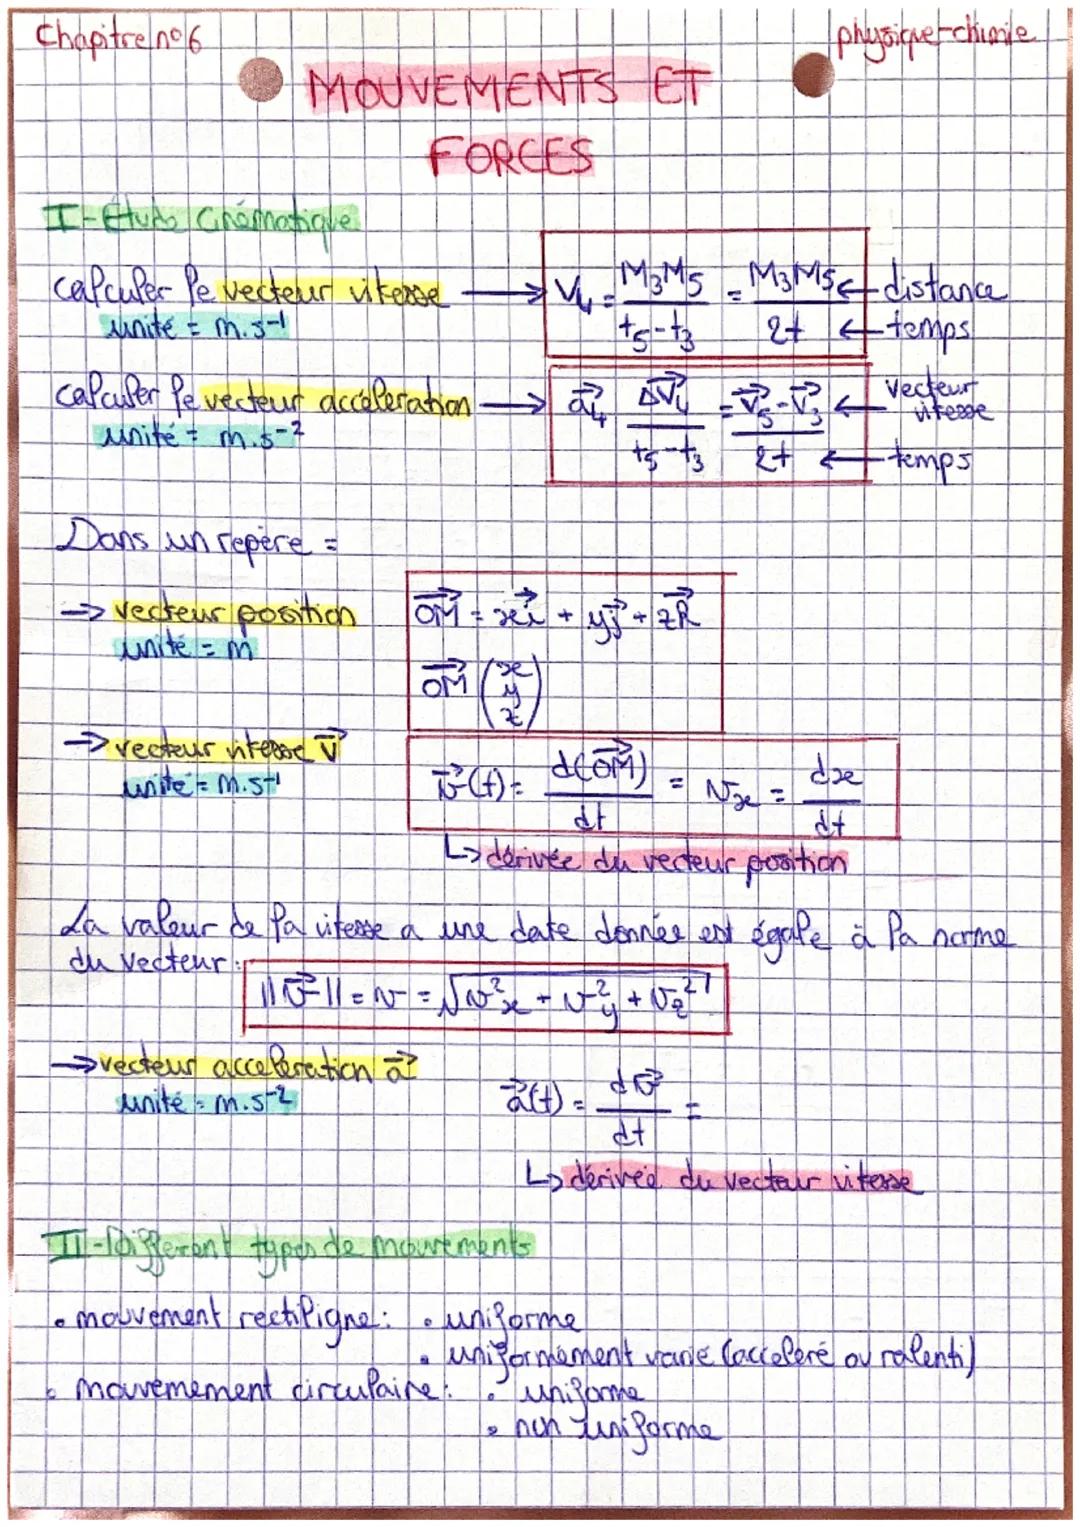 Chapitre n°6
physique-chimie
MOUVEMENTS ET
FORCES
I - Étude Cinématique
calculer le vecteur vitesse → V₄ = M₃M₅ / t₅-t₃ = M₃M₅ / 2t ← distance ← temps
unité = m.s⁻¹
calculer le vecteur accéleration → a⃗₄ ΔV⃗₄ / t₅-t₃ = V⃗₅-V⃗₃ / 2t ← vecteur vitesse ← temps
unité = m.s⁻²
Dans un repère =
→ vecteur position
unité = m
OM⃗ = xi⃗ + yj⃗ + zk⃗
OM⃗ (x y z)
→ vecteur vitesse v⃗
unité = m.s⁻¹
v⃗(t) = d(OM⃗) / dt = vₓ = dx / dt
↳ dérivée du vecteur position
La valeur de la vitesse a une date donnée est égale à la norme
du vecteur :
||v⃗|| = v = √v²x + v²y + vz²
→ vecteur acceleration a⃗
unité = m.s⁻²
a⃗(t) = dv⃗ / dt =
↳ dérivée du vecteur vitesse
II - Différent types de mouvements
• mouvement rectiligne : • uniforme
• uniformément varié (acceleré ou ralenti)
• mouvemement circulaire : • uniforme
• non uniforme